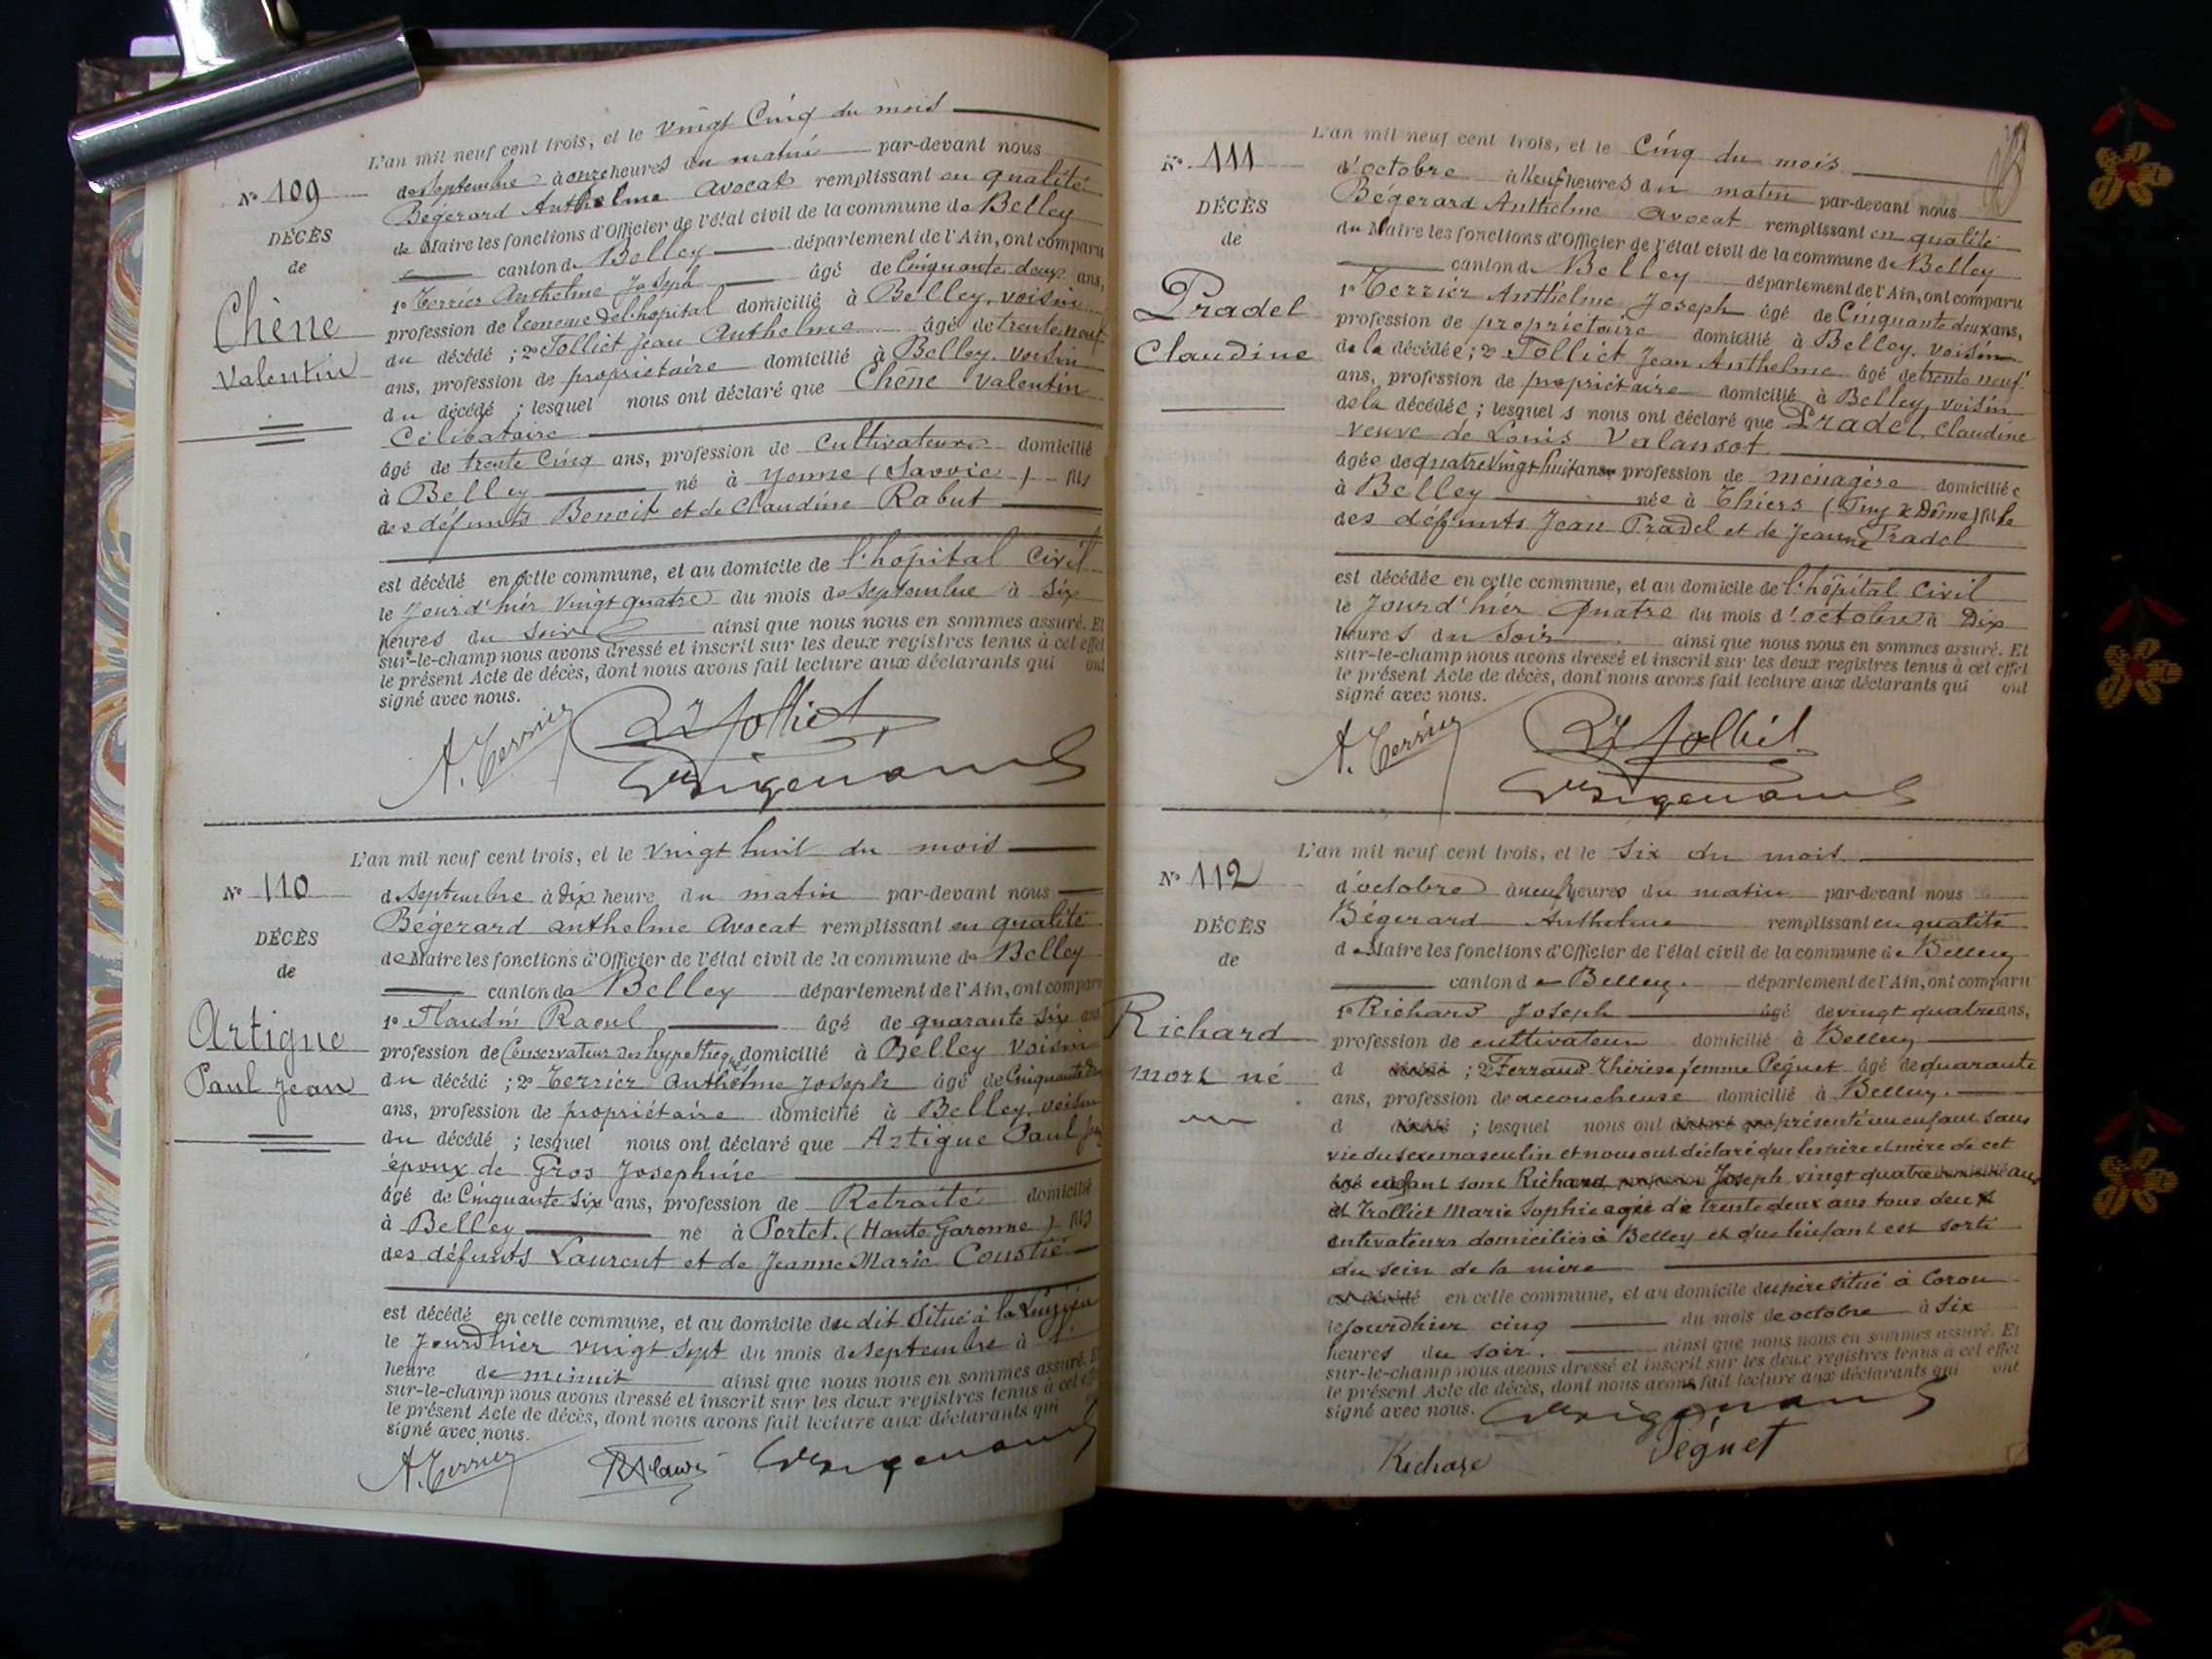 L'an mil neuf cent trois, et le vingt Cinq du mois
N° 109
de Septembre à onze heures du matin par-devant nous
Bégerard Anthelme Avocat remplissant en qualité
DÉCÈS
de Maire les fonctions d'Officier de l'état civil de la commune de Belley
de
canton de Belley département de l'Ain, ont comparu
1° Terrier Anthelme Joseph âgé de Cinquante deux ans,
Chêne
profession de Econome de l'hopital domicilié à Belley, voisin
Valentin
du décédé ; 2° Tolliet Jean Anthelme âgé de trente neuf
ans, profession de propriétaire domicilié à Belley, voisin
du décédé ; lesquel nous ont déclaré que Chêne Valentin
Célibataire
âgé de trente Cinq ans, profession de Cultivateur domicilié
à Belley né à Yenne (Savoie) fils
des défunts Benoit et de Claudine Rabut
est décédé en cette commune, et au domicile de l'hôpital Civil
le jourd'hier Vingt quatre du mois de Septembre à Six
heures du Soir ainsi que nous nous en sommes assuré. Et
sur-le-champ nous avons dressé et inscrit sur les deux registres tenus à cet effet
le présent Acte de décès, dont nous avons fait lecture aux déclarants qui ont
signé avec nous.
A. Terrier Tolliet
L'an mil neuf cent trois, et le Vingt huit du mois
N° 110
de Septembre à dix heure du matin par-devant nous
Bégerard Anthelme Avocat remplissant en qualité
DÉCÈS
de Maire les fonctions d'Officier de l'état civil de la commune de Belley
de
canton de Belley département de l'Ain, ont comparu
1° Flaudin Raoul âgé de quarante Six ans
Artigue
profession de Conservateur des hypothèques domicilié à Belley Voisin
Paul Jean
du décédé ; 2° Terrier Anthelme Joseph âgé de Cinquante deux
ans, profession de propriétaire domicilié à Belley, voisin
du décédé ; lesquel nous ont déclaré que Artigue Paul Jean
époux de Gros Josephine
âgé de Cinquante Six ans, profession de Retraité domicilié
à Belley né à Portet. (Haute Garonne) fils
des défunts Laurent et de Jeanne Marie Coustié
est décédé en cette commune, et au domicile du dit Situé à la
le Jourd'hier vingt Sept du mois de Septembre à
heure de minuit ainsi que nous nous en sommes assuré. Et
sur-le-champ nous avons dressé et inscrit sur les deux registres tenus à cet effet
le présent Acte de décès, dont nous avons fait lecture aux déclarants qui
signé avec nous.
A. Terrier
L'an mil neuf cent trois, et le Cinq du mois
N° 111
d'octobre à Neuf heures du matin par-devant nous
Bégerard Anthelme avocat remplissant en qualité
DÉCÈS
du Maire les fonctions d'Officier de l'état civil de la commune de Belley
de
canton de Belley département de l'Ain, ont comparu
1° Terrier Anthelme Joseph âgé de Cinquante deux ans,
Pradel
profession de propriétaire domicilié à Belley. voisin
Claudine
de la décédée ; 2° Tolliet Jean Anthelme âgé de trente neuf
ans, profession de propriétaire domicilié à Belley, voisin
de la décédée ; lesquels nous ont déclaré que Pradel, Claudine
veuve de Louis Valansot
âgée de quatre Vingt huit ans profession de ménagère domiciliée
à Belley née à Thiers (Puy de Dôme) fille
des défunts Jean Pradel et de Jeanne Pradel
est décédée en cette commune, et au domicile de l'hôpital Civil
le Jourd'hier Quatre du mois d'octobre à Dix
heures du Soir ainsi que nous nous en sommes assuré. Et
sur-le-champ nous avons dressé et inscrit sur les deux registres tenus à cet effet
le présent Acte de décès, dont nous avons fait lecture aux déclarants qui ont
signé avec nous.
A. Terrier Tolliet
L'an mil neuf cent trois, et le Six du mois
N° 112
d'octobre à neuf heures du matin par-devant nous
Bégerard Anthelme remplissant en qualité
DÉCÈS
de Maire les fonctions d'Officier de l'état civil de la commune de Belley
de
canton de Belley. département de l'Ain, ont comparu
1° Richard Joseph âgé de vingt quatre ans,
Richard
profession de cultivateur domicilié à Belley
mort né
d ; 2° Ferraud Thérèse femme Péguet âgé de quarante
ans, profession de accoucheuse domicilié à Belley.
d ; lesquel nous ont présenté un enfant sans
vie du sexe masculin et nous ont déclaré que les père et mère de cet
enfant sont Richard Joseph vingt quatre ans
et Trolliet Marie Sophie agée de trente deux ans tous deux
cutivateurs domiciliés à Belley et que l'enfant est sorti
du sein de la mère
en cette commune, et au domicile du père situé à Coron
le jourdhier cinq du mois de octobre à six
heures du soir. ainsi que nous nous en sommes assuré. Et
sur-le-champ nous avons dressé et inscrit sur les deux registres tenus à cet effet
le présent Acte de décès, dont nous avons fait lecture aux déclarants qui ont
signé avec nous.
Richard Péguet